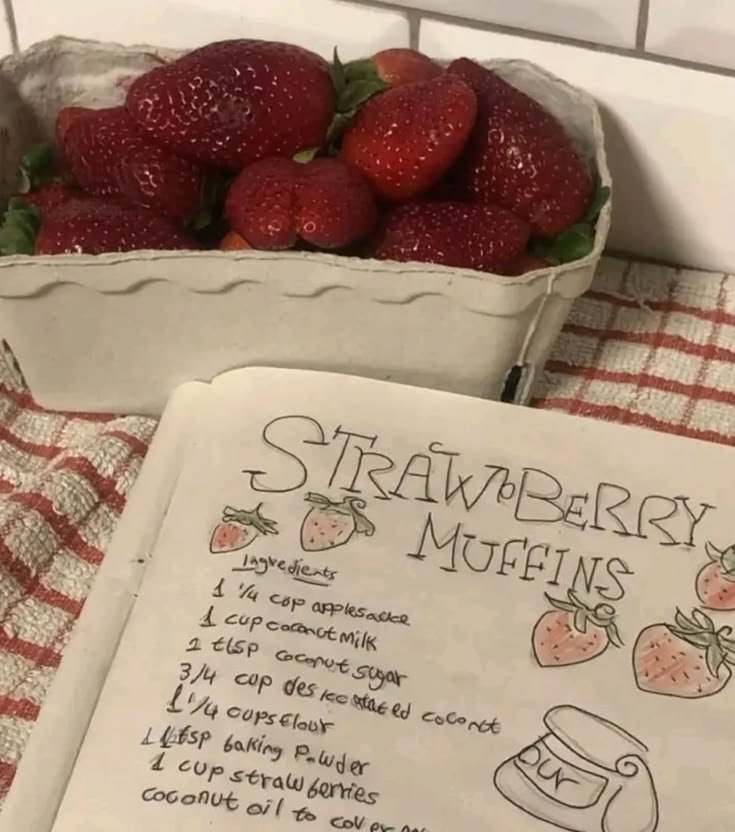 STRAWBERRY
MUFFINS
Ingredients
1 1/4 cup applesauce
1 cup coconut milk
tbsp coconut sugar
3/4 cup desiccated coconut
1 1/4 cups flour
tsp baking powder
1 cup strawberries
coconut oil to
our